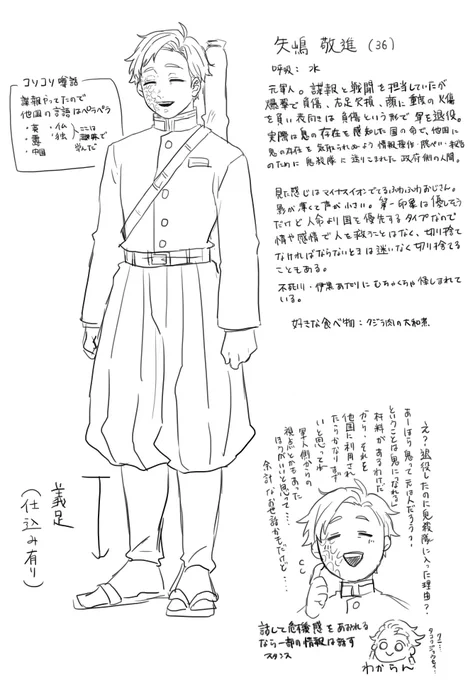 矢嶋 敬進 (36)
呼吸: 水
元軍人。諜報と戦闘を担当していたが
爆撃で負傷、右足欠損、顔に重度の火傷
を負い表向きは負傷という形で軍を退役。
実際は鬼の存在を感知した国の命で、他国に
鬼の存在を気取られぬよう情報操作・隠ぺい・
のために鬼殺隊に送りこまれた政府側の人間。
見た感じはマイナスイオンでてるふわふわおじさん。
影が薄くて声が小さい。第一印象は優しそう
だけど人命より国を優先するタイプなので
情や感情で人を救うことはなく、切り捨て
なければならないときは迷いなく切り捨てる
こともある。
不死川・伊黒あたりにむちゃくちゃ怪しまれて
いる。
好きな食べ物:クジラ肉の大和煮
コソコソ噂話
諜報やってたので
他国の言語はペラペラ
・英 ・仏
・露 ・独
・中国
ここは
趣味で
学んだ
義足
(仕込み有り)
え?退役したのに鬼殺隊に入った理由?
あーほら鬼って元は人だろう?
ということは鬼に「なれる」
材料があるわけだ
から、それを
他国に利用され
たらかなりまず
いと思ってね
軍人側からの
視点とかもあった
ほうがいいと思って…
余計なお世話かもだけど…
話して危機感をあおれる
なら一部の情報は話す
スタンス
わからん